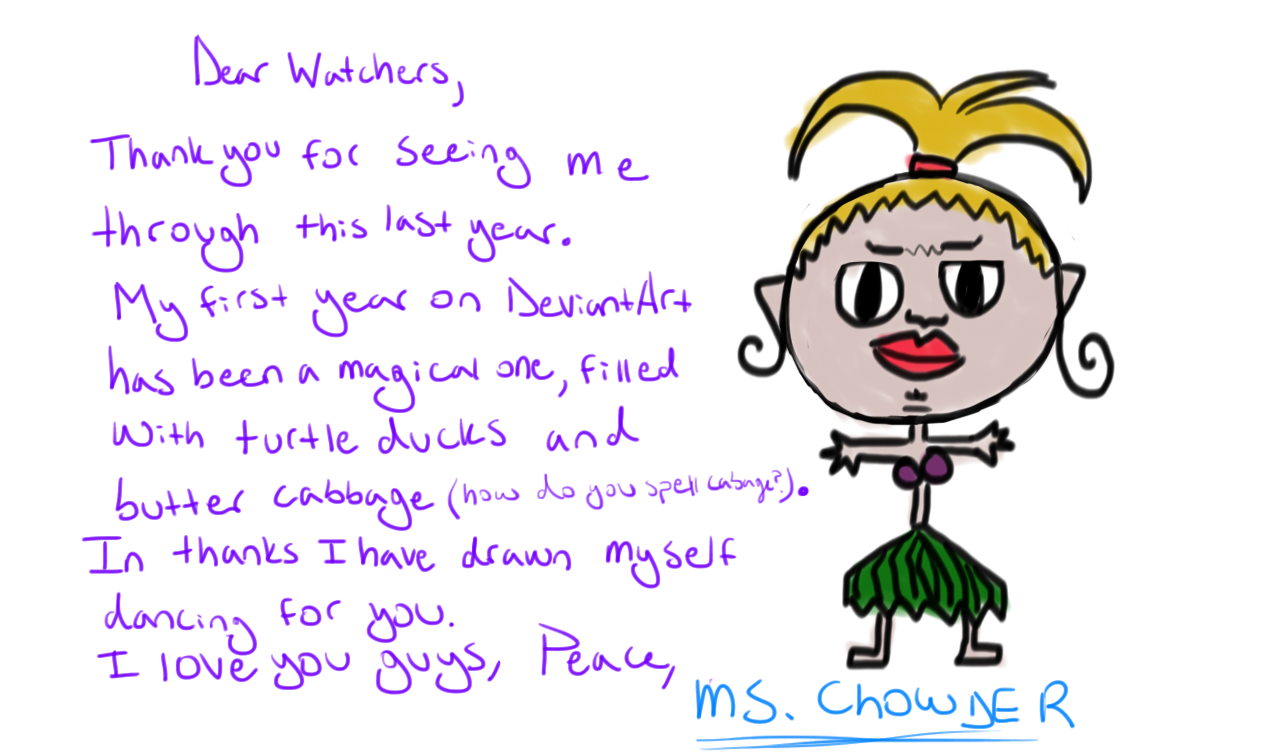 Dear Watchers,
Thank you for seeing me
through this last year.
My first year on DeviantArt
has been a magical one, filled
With turtle ducks and
butter cabbage (how do you spell cabage?).
In thanks I have drawn myself
dancing for you.
I love you guys, Peace,
MS. CHOWDER